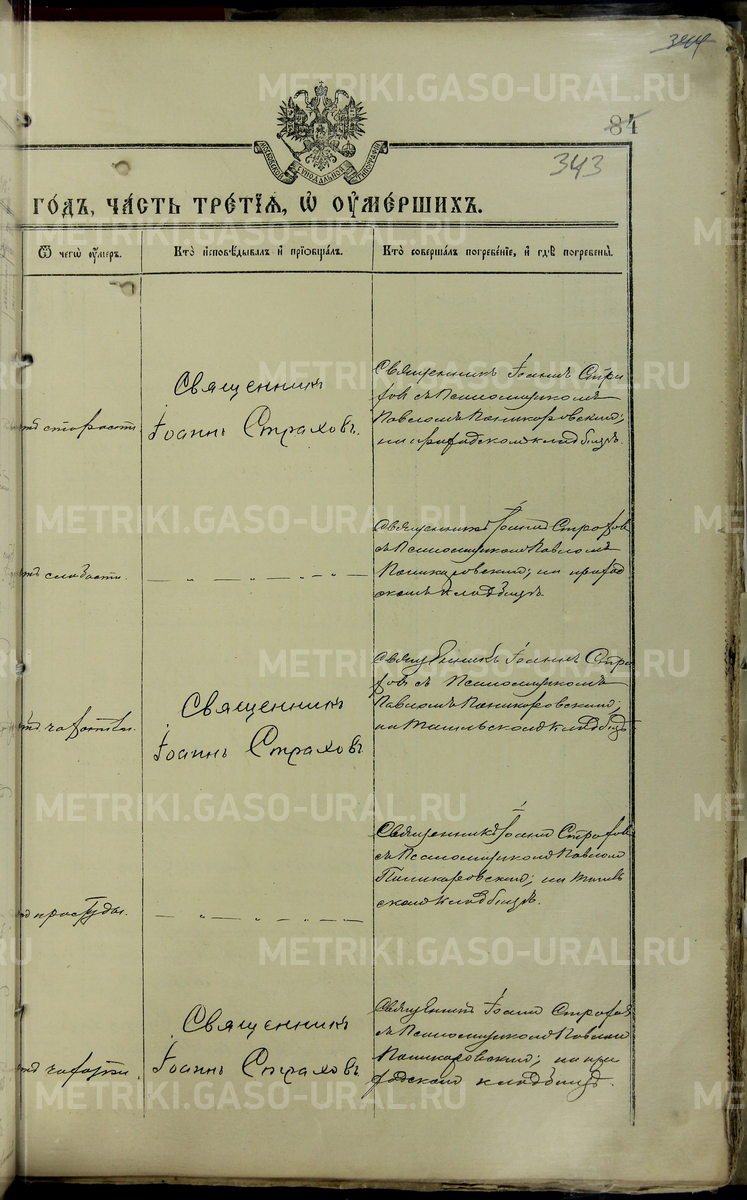 344
84
343
МОСКОВСКОЙ СѴНОДАЛЬНОЙ ТИПОГРАФІИ
ГО́ДЪ, ЧА́СТЬ ТРЕ́ТІѦ, Ѡ҆ ОУ҆МЕ́РШИХЪ.
Ѿ чегѡ̀ оу҆́меръ.
Кто̀ и҆сповѣ́дывалъ и҆ прїѡбща́лъ.
Кто̀ соверша́лъ погребе́нїе, и҆ гдѣ̀ погребены̀.
отъ старости
Священникъ
Іоаннъ Страховъ.
Священникъ Іоаннъ Стра
ховъ съ Псаломщикомъ
Павломъ Пономаревскимъ;
на приходскомъ кладбищѣ.
отъ слабости.
— „ — „ — „ —
Священникъ Іоаннъ Страховъ
съ Псаломщикомъ Павломъ
на приход
скомъ кладбищѣ.
отъ чахотки.
Священникъ
Іоаннъ Страховъ
Священникъ Іоаннъ Стра
ховъ съ Псаломщикомъ
Павломъ
на кладбищѣ
отъ простуды.
— „ — „ — „ —
Священникъ Іоаннъ Страховъ
съ Псаломщикомъ Павломъ
на
скомъ кладбищѣ.
отъ чахотки.
Священникъ
Іоаннъ Страховъ
Священникъ Іоаннъ Страховъ
съ Псаломщикомъ Павломъ
на при
ходскомъ кладбищѣ.
METRIKI.GASO-URAL.RU